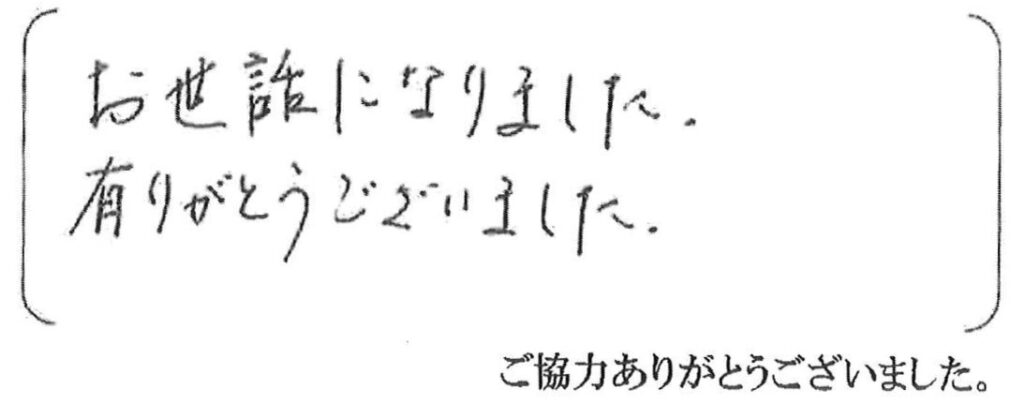 お世話になりました.
有りがとうございました.
ご協力ありがとうございました。